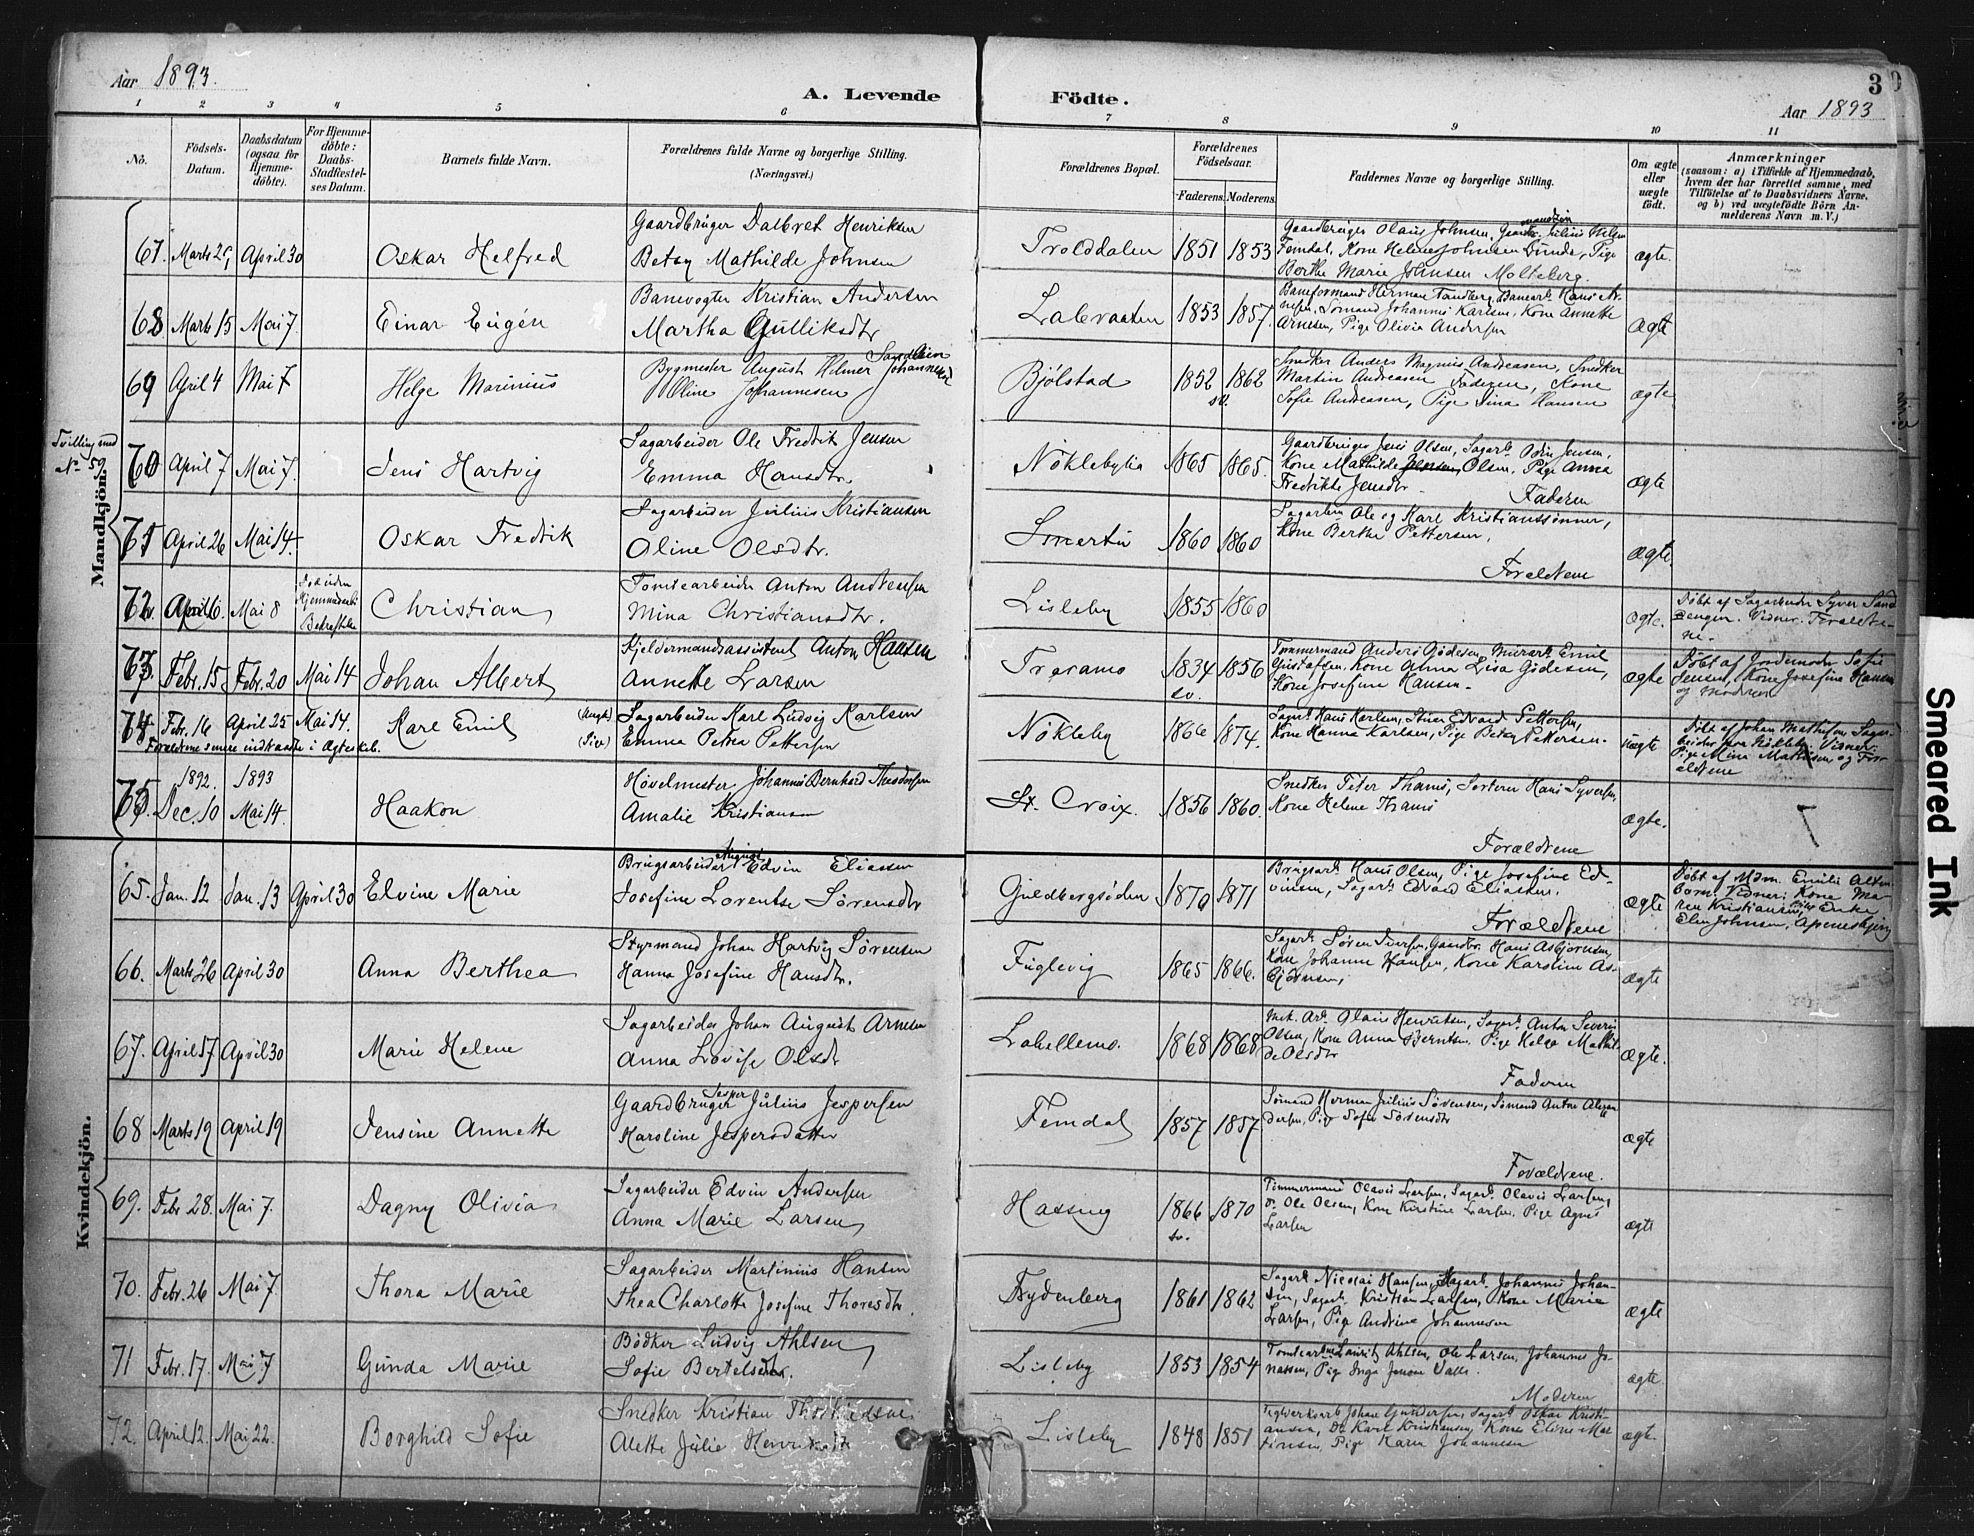 Aar 1893.
A. Levende Födte.
3
Aar 1893
1 2 3 4 5 6 7 8 9 10 11
No.
Födsels-Datum.
Daabsdatum (ogsaa for Hjemme-döbte).
For Hjemme-döbte: Daabs-Stadfæstel-ses Datum.
Barnets fulde Navn.
Forældrenes fulde Navne og borgerlige Stilling.
(Næringsvei.)
Forældrenes Bopæl.
Forældrenes Födselsaar.
Faderens. Moderens.
Faddernes Navne og borgerlige Stilling.
Om ægte eller uægte födt.
Anmærkninger
(saasom: a) i Tilfælde af Hjemmedaab,
hvem der har forrettet samme, med
Tilföielse af to Daabsvidners Navne.
og b) ved uægtefödte Börn An-
melderens Navn m. V.)
Mandkjön.
67. April 30 Oskar Helfred
Gaardbruger Dalbret Henriksen
Betsy Mathilde Johnsen
Trolddalen 1851 1853
Gaardbruger Olaus Johnsen, Julius
Femdal, Kone Helene Johnsen Lunde, Pige
Berthe Marie Johnsen Molteberg.
ægte.
68 Marts 15 Mai 7. Einar Eugén
Banevogter Kristian Andersen
Martha Gulliksdtr
Labraaten 1853 1857.
Baneformand Herman Tandberg, Banearb. Hans Ar-
nesen, Sömand Johannes Karlsen, Kone Annette
Arnesen, Pige Olivia Andersen
ægte
69 April 4 Mai 7 Helge Marinius
Bygmester August Hilmer Johannesen
Oline Johannesen
Bjölstad 1852 1862
sv.
Snedker Anders Magnus Andreasen, Snedker
Martin Andreasen Faderen, Kone
Sofie Andreasen, Pige Lina Hansen
ægte
Tvilling med
No 59.
70 April 7 Mai 7. Jens Hartvig
Sagarbeider Ole Fredrik Jensen
Emma Hansdtr.
Nöklebylia 1865 1865.
Gaardbruger Jens Olsen, Sagarb. Jensen,
Kone Mathilde Jensen Olsen, Pige Anna
Fredrikke Jensdtr.
Faderen
ægte
71 April 26 Mai 14. Oskar Fredrik
Sagarbeider Julius Kristiansen
Oline Olsdtr.
Smertu 1860 1860
Ole og Karl Kristianssönner,
Kone Berthe Pettersen,
Foreldrene
ægte
72. April 6. Mai 8
Bedrøftelse
Christian
Tomtearbeider Anton Andreasen
Mina Christiansdtr.
Lisleby 1855 1860
ægte.
Döbt af Sagarbeider Syver Sand
engen. Vidner. Foreldre-
ne.
73. Febr. 15 Febr. 20 Mai 14 Johan Albert
Kjeldermandsassistent Anton Hansen
Annette Larsen
Traramo 1834 1856
sv.
Tømmermand Anders Gödesen, Murarb. Emil
Gustafsen, Kone Anna Lisa Gödesen,
Kone Josefine Hansen.
ægte
Döbt af Jordemoder Sofie
Jensen, Kone Josefine Hansen
og Moderen
74. Febr. 16 April 25 Mai 14. Karl Emil
Forældrene senere indtraadte i Ægteskab.
(Ungk.) Sagarbeider Karl Ludvig Karlsen
(Pige) Emma Petrea Pettersen
Nökleby 1866 1874.
Sagarb. Hans Karlsen, Stuer Edvard Pettersen,
Kone Hanna Karlsen, Pige Betsy Pettersen.
uægte
Döbt af Johan Mathisen, Sagar-
beider paa Nökleby. Vidner:
Pige Mina Mathisen og For-
eldrene
1892. 1893
75. Dec. 10 Mai 14. Haakon
Hövelmester Johannes Bernhard Theodorsen
Amalie Kristiansen
St. Croix. 1856 1860.
Snedker Peter Thams, Sorterer Hans Syversen,
Kone Helene Thams
Forældrene
ægte.
Kvindekjön.
65. Jan. 12 Jan. 13 April 30 Elvine Marie
Brugsarbeider August Edvin Eliassen
Josefine Lorentse Sörensdtr
Guldbergsöden 1870 1871
Brugsarb. Hans Olsen, Pige Josefine Ed-
vinsen, Sagarb. Edvard Eliassen.
Forældrene
ægte
Döbt af Mdm. Emilie Alten-
born. Vidner: Kone Ma-
ren Kristiansen, Enke
Elen Johnsen, Apenesfjeng
66. Marts 26 April 30 Anna Berthea
Styrmand Johan Hartvig Sörensen
Hanna Josefine Hansdtr.
Fuglevig 1865 1866.
Sagarb. Sören Iversen, Gaardbr. Hans Asbjörnsen,
Kone Johanne Hansen, Kone Karoline As-
björnsen,
ægte
67. April 17 April 30 Marie Helene
Sagarbeider Johan August Arnesen
Anna Lovise Olsdtr
Labellemo. 1868 1868
Mek. Arb. Olaus Henriksen, Sagarb. Anton Severin
Olsen, Kone Anna Berntsen, Pige Helga Mathil-
de Olsdtr
Faderen
ægte.
68 Marts 19 April 19 Jensine Annette
Gaardbruger Jesper Julius Jespersen
Karoline Jespersdatter
Femdal 1857 1857
Sömand Herman Julius Sörensen, Sömand Anton Alexan-
dersen, Pige Sofie Sörensdtr
Forældrene.
ægte
69. Febr 28. Mai 7. Dagny Olivia
Sagarbeider Edvin Andersen
Anna Marie Larsen
Hassing 1866 1870
sv.
Tömmermand Olavus Larsen, Sagarb. Olavus Larsen,
Ole Olsen, Kone Kirstine Larsen, Pige Agnes
Larsen
ægte
70. Febr. 26 Mai 7. Thora Marie
Sagarbeider Martinius Hansen
Thea Charlotte Josefine Thoresdtr.
Frydenberg 1861 1862
Sagarb. Nicolai Hansen, Sagarb. Johannes Johan-
sen, Sagarb. Kristian Larsen, Kone Marie
Larsen, Pige Andrine Johannesen
ægte
71 Febr. 17. Mai 7 Gunda Marie
Bödker Ludvig Ahlsen
Sofie Bertelsdtr.
Lisleby 1853 1854
Tomtearb. Lauritz Ahlsen, Ole Larsen, Johannes Jo-
nassen, Pige Inga Valle.
Moderen
ægte.
72. April 12. Mai 22. Borghild Sofie
Snedker Kristian
Alette Julie Henriksdtr
Lisleby 1848 1851
Teglverksarb. Johan Gundersen, Sagarb. Oskar Kristi-
ansen, Do Karl Kristiansen, Kone Eline Mar-
tinsen, Pige Karen Johannesen
ægt.
Smeared Ink